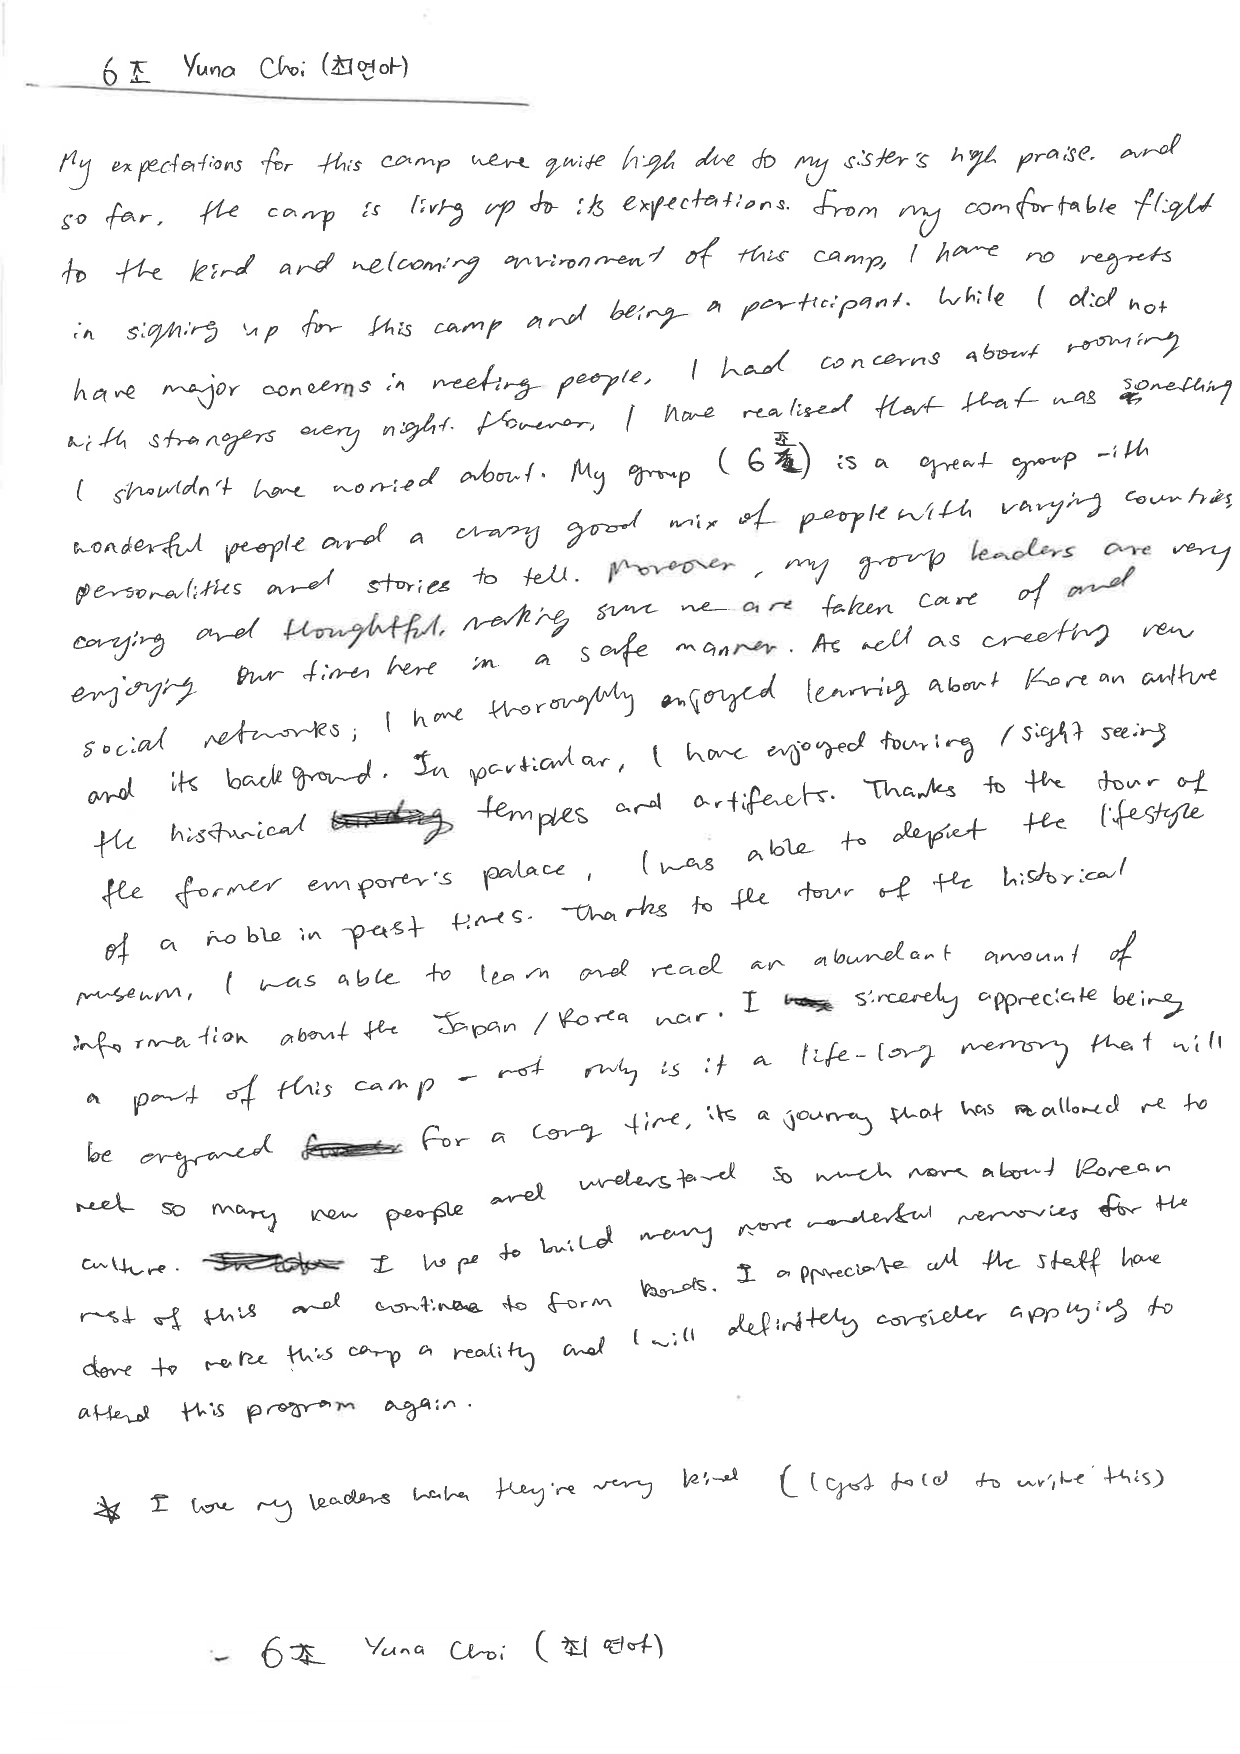 6조 Yuna Choi (최연아)
My expectations for this camp were quite high due to my sister's high praise. and
so far, the camp is living up to its expectations. From my comfortable flight
to the kind and welcoming environment of this camp, I have no regrets
in signing up for this camp and being a participant. While I did not
have major concerns in meeting people, I had concerns about rooming
with strangers every night. However, I have realised that that was something
I shouldn't have worried about. My group (6조) is a great group with
wonderful people and a crazy good mix of people with varying countries,
personalities and stories to tell. Moreover, my group leaders are very
carying and thoughtful, making sure we are taken care of and
enjoying our times here in a safe manner. As well as creating new
social networks; I have thoroughly enjoyed learning about Korean culture
and its background. In particular, I have enjoyed touring / sight seeing
the historical temples and artifacts. Thanks to the tour of
the former emporer's palace, I was able to depict the lifestyle
of a noble in past times. Thanks to the tour of the historical
museum, I was able to learn and read an abundant amount of
information about the Japan / Korea war. I sincerely appreciate being
a part of this camp - not only is it a life-long memory that will
be engraved for a long time, its a journey that has allowed me to
meet so many new people and understand so much more about Korean
culture. I hope to build many more wonderful memories for the
rest of this and continue to form bonds. I appreciate all the staff have
done to make this camp a reality and I will definitely consider applying to
attend this program again.
☆ I love my leaders haha they're very kind (I got told to write this)
- 6조 Yuna Choi (최연아)